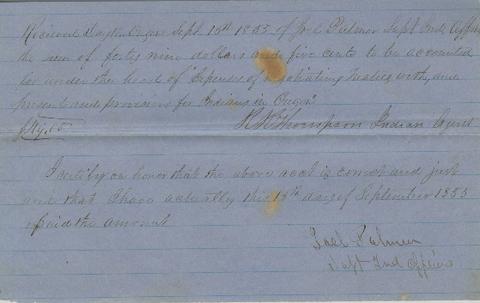 Received Dayton Oregon Sept 15th 1855 of Joel Palmer Supt Indn Affairs
the sum of forty nine dollars and five cents to be accounted
for under the head of Expenses of negotiating treaties with, and
presents and provisions for Indians in Oregon
$49.05
R. R. Thompson Indian Agent
I certify on honor that the above acct is correct and just
and that I have actually this 15th day of September 1855
paid the amount
Joel Palmer
Supt Ind Affairs